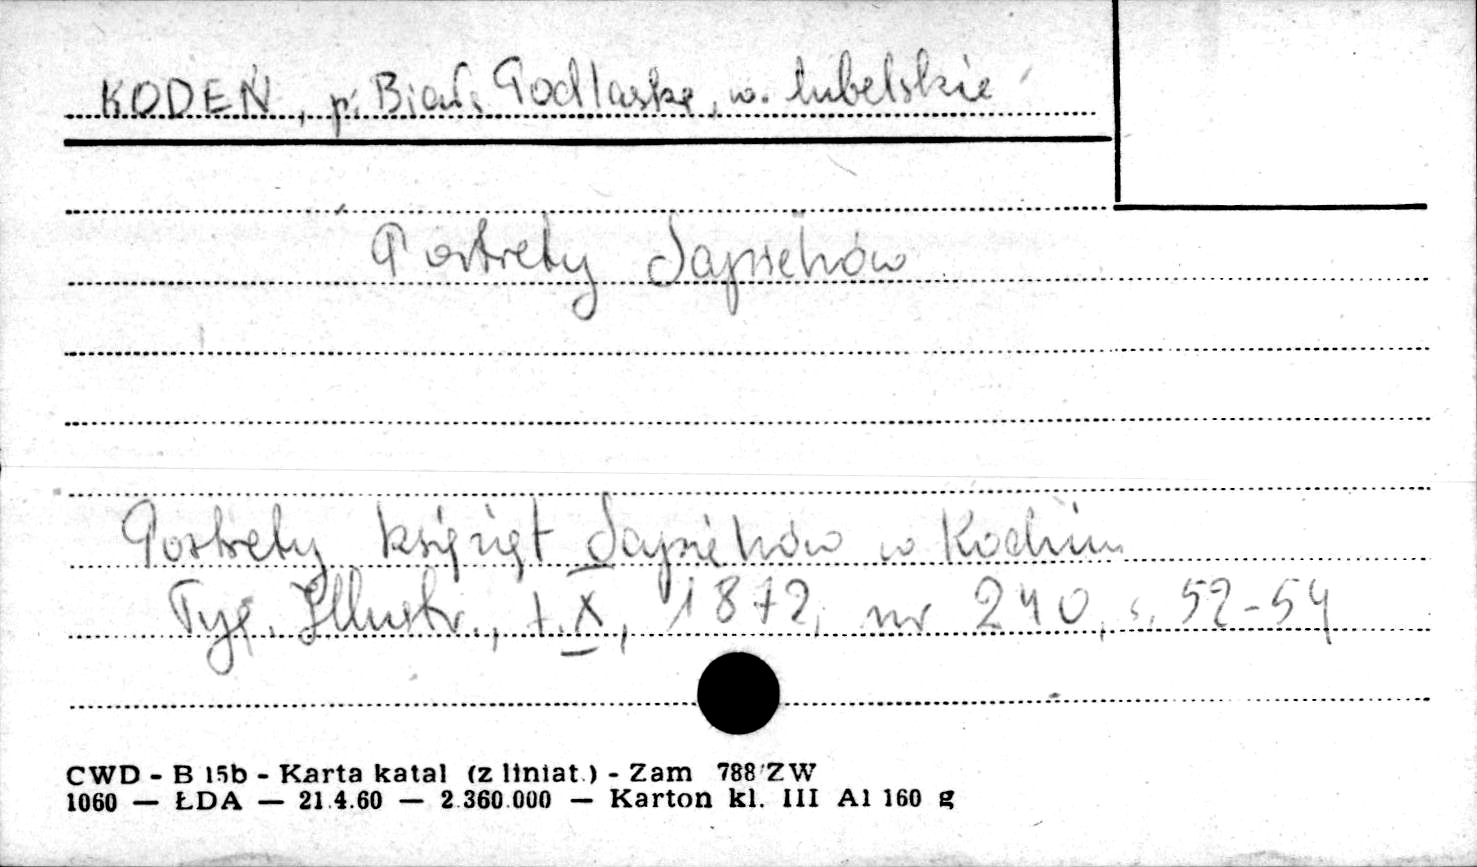 KODEŃ, p. Biał. Podlaska, w. lubelskie
Portrety Sapiehów
Portrety książąt Sapiehów w Kodniu
Tyg. Illustr., t. X, 1872, nr 240, s. 52-54
CWD - B 15b - Karta katal (z liniat.) - Zam 788/ZW
1060 — ŁDA — 21.4.60 — 2.360.000 — Karton kl. III A1 160 g